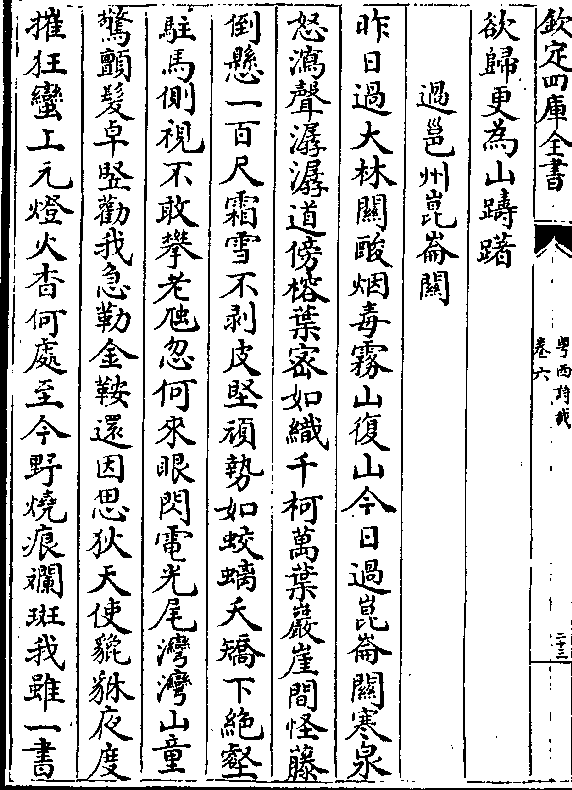 欽定四庫全書
粤西詩載
卷六
二十三
欲歸更為山躊躇
過邕州崑崙關
昨日過大林關酸烟毒霧山復山今日過崑崙關寒泉
怒瀉聲潺潺道傍榕葉宻如織千柯萬葉巖崖間怪藤
倒懸一百尺霜雪不剥皮堅頑勢如蛟螭夭矯下絶壑
駐馬側視不敢攀老虺忽何來眼閃電光尾灣灣山童
驚顫髮卓竪勸我急勒金鞍還因思狄天使貔貅夜度
摧狂蠻上元燈火杳何處至今野燒痕斕斑我雖一書